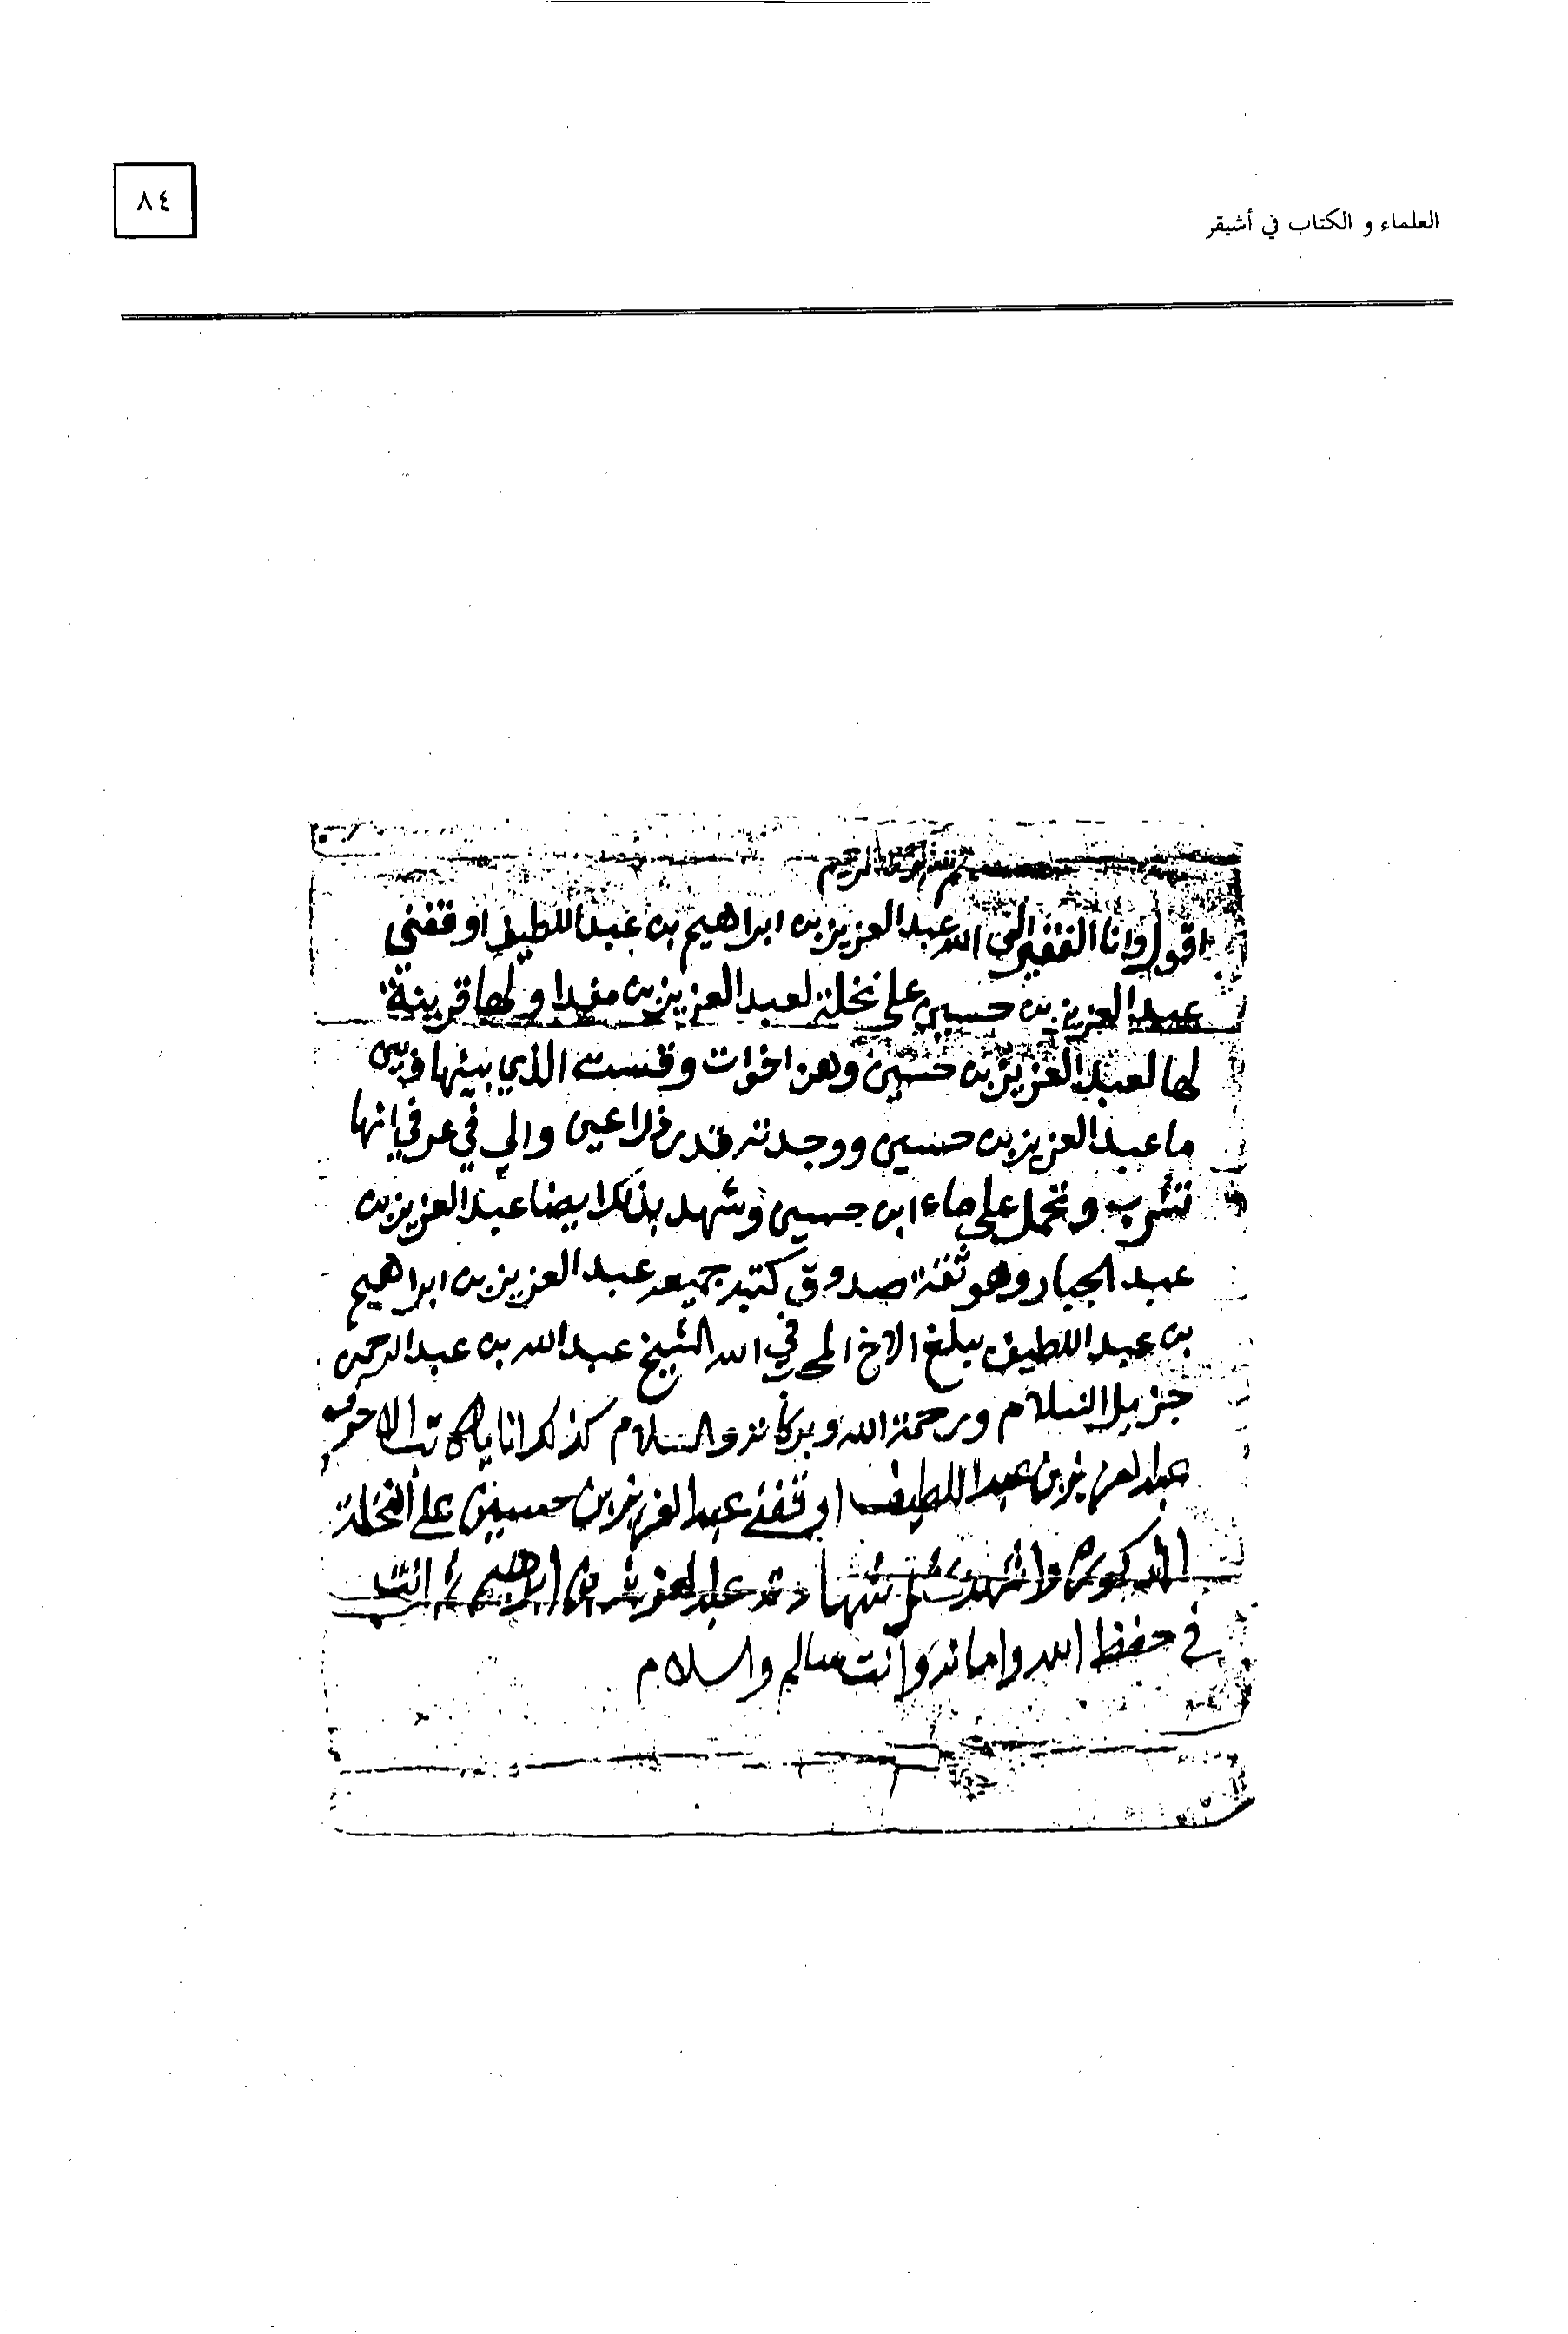 ٨٤
العلماء و الكتاب في أشيقر
بسم الله الرحمن الرحيم
اقول وانا الفقير الى الله عبدالعزيز بن ابراهيم بن عبداللطيف اوقفني
عبدالعزيز بن حسين على نخلة لعبدالعزيز بن مفدا ولها قرينة
لها لعبدالعزيز بن حسين وهن اخوات وقست الذي بينها وبين
ما عبدالعزيز بن حسين ووجدته قدر ذراعين والي في عرفي انها
تشرب وتحمل على ماء ابن حسين وشهد بذلك ايضا عبدالعزيز بن
عبدالجبار وهو ثقة صدوق كتبه جميعه عبدالعزيز بن ابراهيم
بن عبداللطيف يبلغ الاخ المحب في الله الشيخ عبدالله بن عبدالرحمن
جزيل السلام ورحمة الله وبركاته والسلام كذلك انا يا كاتب الاحرف
عبدالعزيز بن عبداللطيف اوقفني عبدالعزيز بن حسين على النخلة
المذكورة واشهد مثل شهادة عبدالعزيز بن ابراهيم انت
في حفظ الله وامانه وانت سالم والسلام